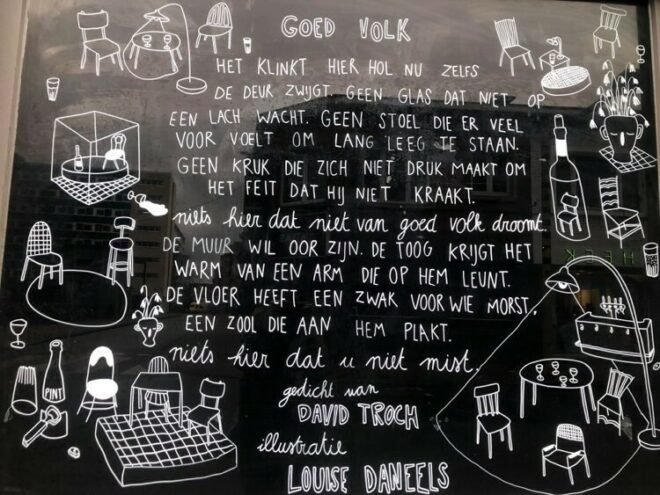 GOED VOLK
HET KLINKT HIER HOL NU ZELFS
DE DEUR ZWIJGT. GEEN GLAS DAT NIET OP
EEN LACH WACHT. GEEN STOEL DIE ER VEEL
VOOR VOELT OM LANG LEEG TE STAAN.
GEEN KRUK DIE ZICH NIET DRUK MAAKT OM
HET FEIT DAT HIJ NIET KRAAKT.
niets hier dat niet van goed volk droomt.
DE MUUR WIL OOR ZIJN. DE TOOG KRIJGT HET
WARM VAN EEN ARM DIE OP HEM LEUNT.
DE VLOER HEEFT EEN ZWAK VOOR WIE MORST,
EEN ZOOL DIE AAN HEM PLAKT.
niets hier dat u niet mist.
gedicht van
DAVID TROCH
illustratie
LOUISE DANEELS
PINT